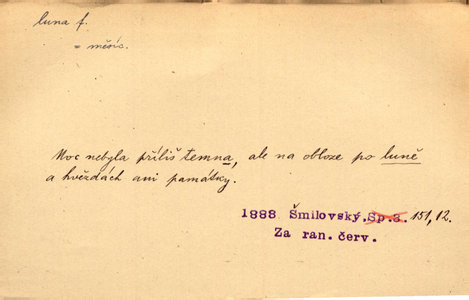 luna f.
= měsíc.
Noc nebyla příliš temna, ale na obloze po luně
a hvězdách ani památky.
1888 Šmilovský. Sp. 3. 151, 12.
Za ran. červ.